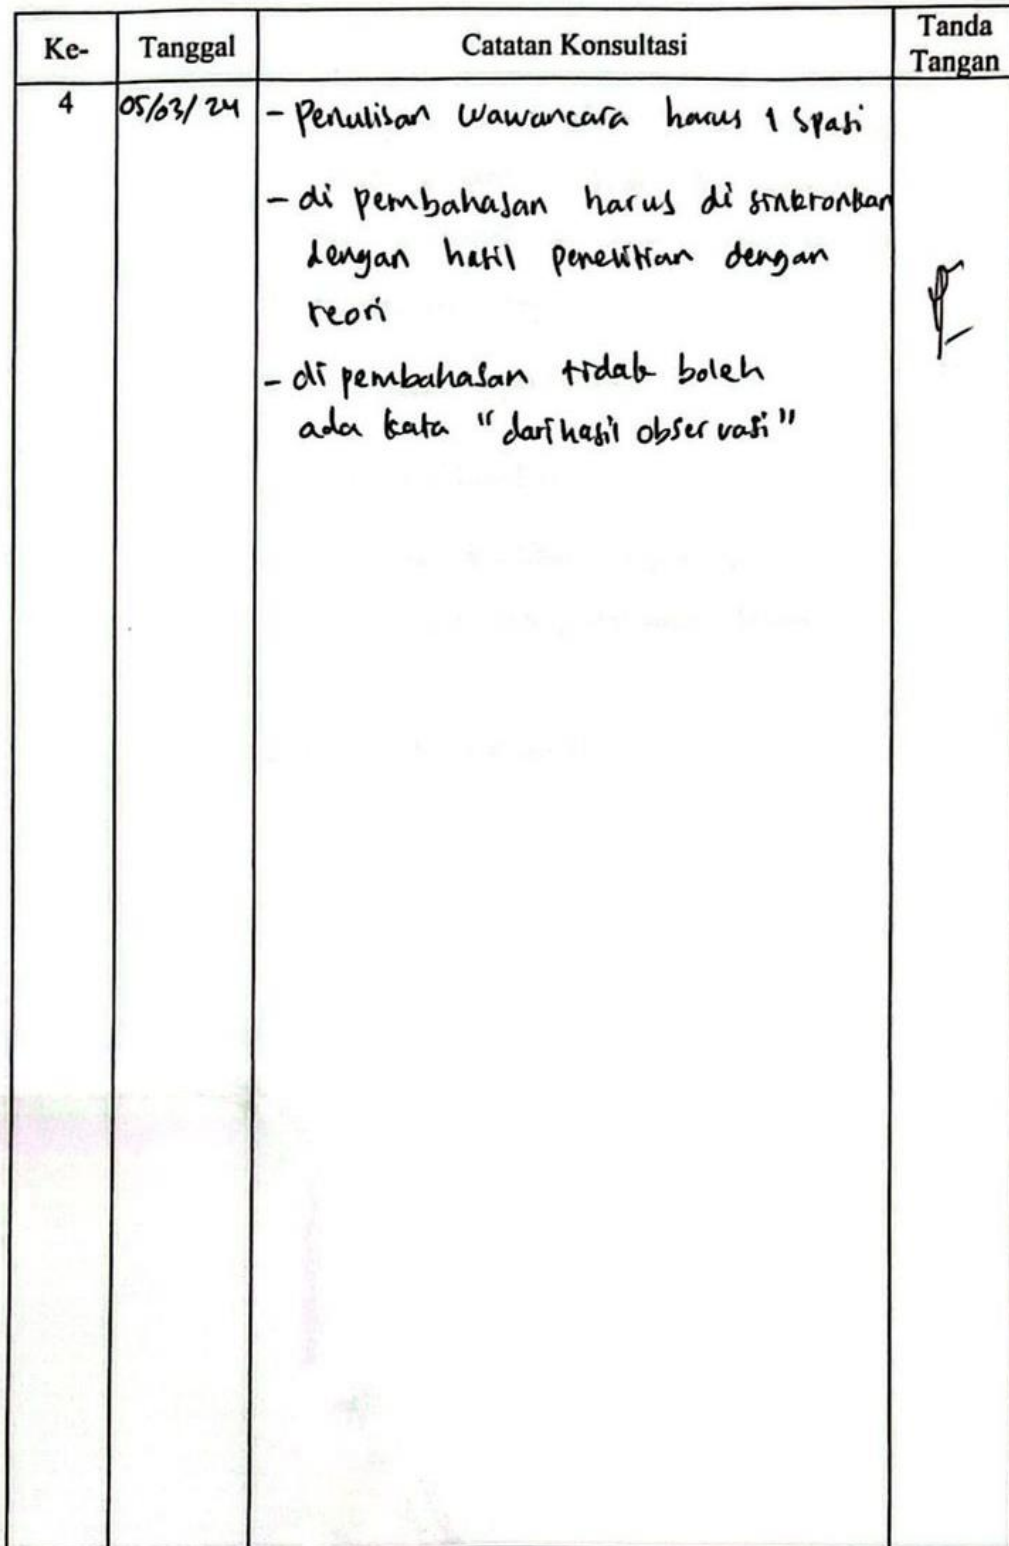 Ke- Tanggal Catatan Konsultasi Tanda Tangan
4 05/03/24 - Penulisan wawancara harus 1 spasi
- di pembahasan harus di sinkronkan
dengan hasil penelitian dengan
teori
- di pembahasan tidak boleh
ada kata "dari hasil observasi"